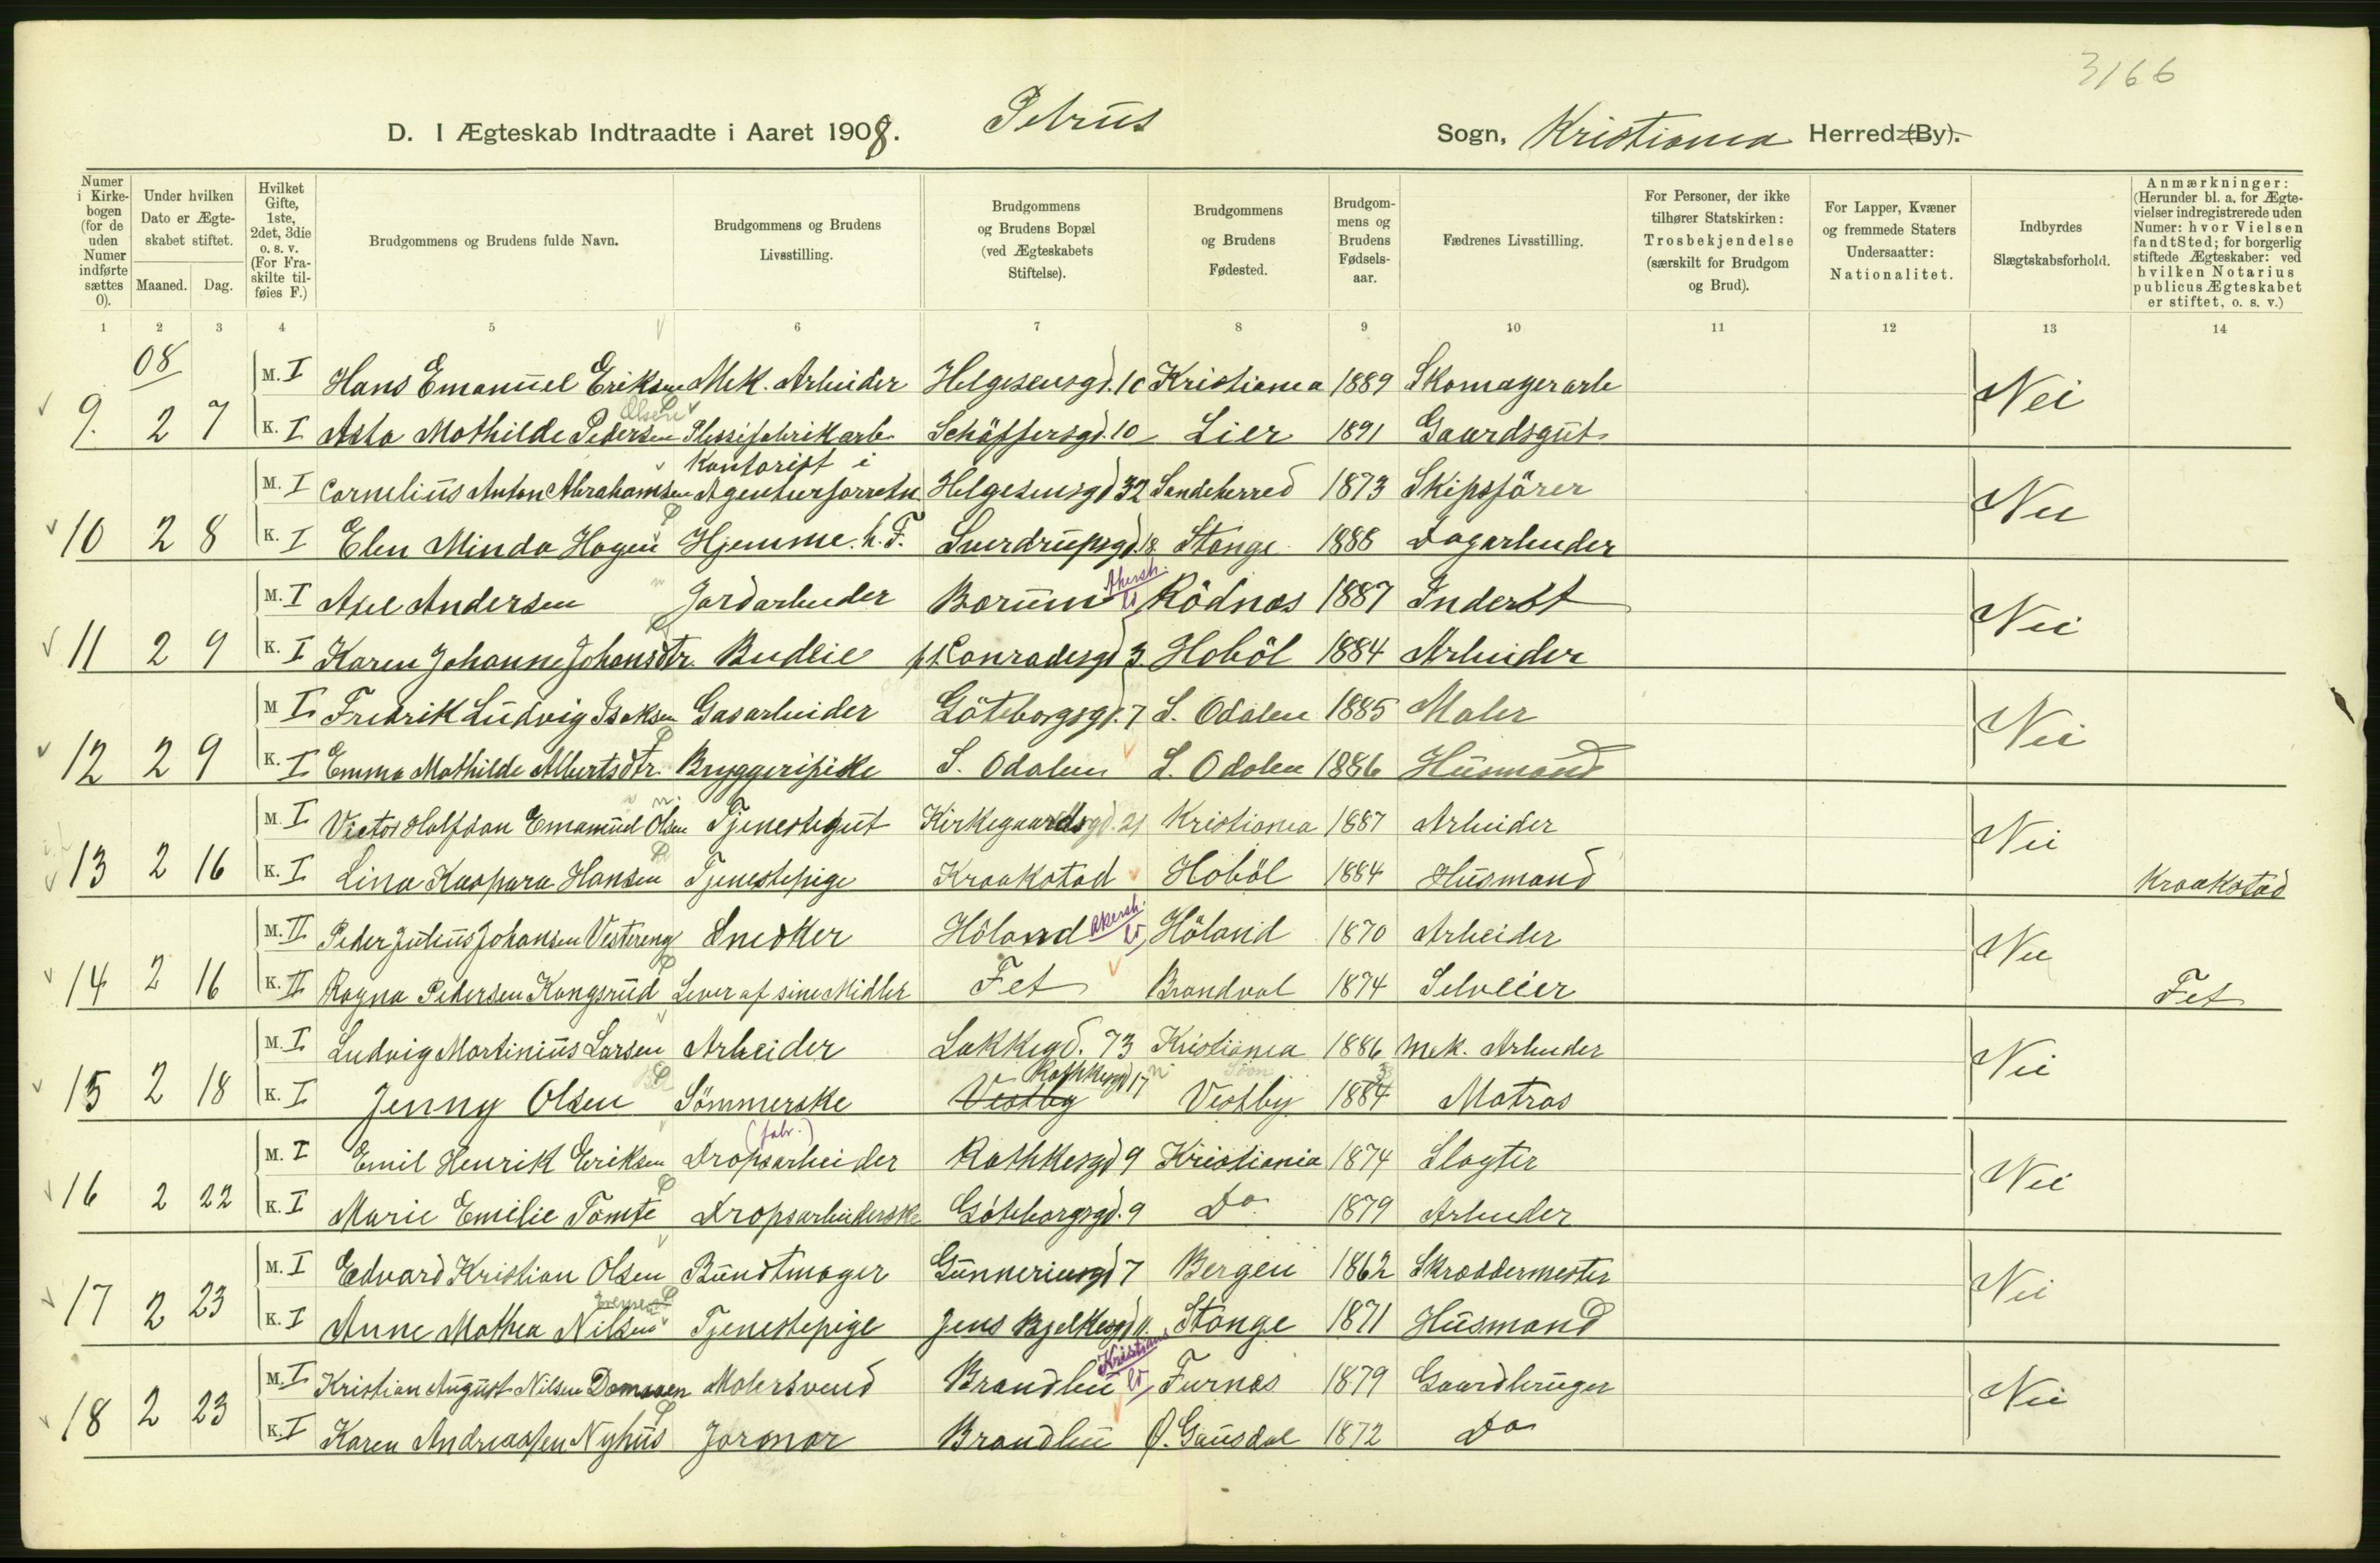 3166
D. I Ægteskab Indtraadte i Aaret 1908. Petrus Sogn, Kristiania Herred (By).
Numer i Kirkebogen (for de uden Numer indførte sættes 0). Under hvilken Dato er Ægteskabet stiftet. Maaned. Dag. Hvilket Gifte, 1ste, 2det, 3die o. s. v. (For Fraskilte tilføies F.) Brudgommens og Brudens fulde Navn. Brudgommens og Brudens Livsstilling. Brudgommens og Brudens Bopæl (ved Ægteskabets Stiftelse). Brudgommens og Brudens Fødested. Brudgommens og Brudens Fødselsaar. Fædrenes Livsstilling. For Personer, der ikke tilhører Statskirken: Trosbekjendelse (særskilt for Brudgom og Brud). For Lapper, Kvæner og fremmede Staters Undersaatter: Nationalitet. Indbyrdes Slægtskabsforhold. Anmærkninger: (Herunder bl. a. for Ægtevielser indregistrerede uden Numer: hvor Vielsen fandt Sted; for borgerlig stiftede Ægteskaber: ved hvilken Notarius publicus Ægteskabet er stiftet, o. s. v.)
1 2 3 4 5 6 7 8 9 10 11 12 13 14
08
M. I Hans Emanuel Eriksen Mek. Arbeider Helgesensgd. 10 Kristiania 1889 Skomagerarb Nei
Olsen
9. 2 7 K. I Asta Mathilde Pedersen fabrikarb. Schöffersgd. 10 Lier 1891 Gaardsgut
Kontorist i
M. I Cornelius Anton Abrahamsen Agenturforretn. Helgesensgd 32 Sandeherred 1873 Skipsförer Nei
10 2 8 K. I Elen Minda Hagen Hjemme h. F. Sverdrupsgd. 18 Stange 1888 Dagarbeider
Akersh.
M. I Axel Andersen Jordarbeider Bærum Rödnes 1887 Inderst Nei
11 2 9 K. I Karen Johanne Johansdtr. Budeie Conradisgd 3. Hoböl 1884 Arbeider
M I Fredrik Ludvig Isaksen Gasarbeider Göteborgsgd. 7 S. Odalen 1885 Maler Nei
12 2 9 K. I Emma Mathilde Albertsdtr. Bryggeripike S. Odalen S. Odalen 1886 Husmand
M. I Victor Halfdan Emanuel Olsen Tjenestegut Kirkegaardsgd. 21 Kristiania 1887 Arbeider Nei
13 2 16 K. I Lina Kaspara Hansen Tjenestepige Kraakstad Hoböl 1884 Husmand Kraakstad
Akersh.
M. II Peder Julius Johansen Vestereng Snedker Höland Höland 1870 Arbeider Nei
14 2 16 K. II Ragna Pedersen Kongsrud Lever af sine Midler Fet Brandval 1874 Selveier Fet
M. I Ludvig Martinius Larsen Arbeider Lakkegd. 73 Kristiania 1886 Mek. Arbeider Nei
Rathkesgd 17 Soon 3
15 2 18 K. I Jenny Olsen Sömmerske Vestby Vestby 1884 Matros
(fabr.)
M. I Emil Henrik Eriksen Dropsarbeider Rathkesgd 9 Kristiania 1874 Slagter Nei
16 2 22 K. I Marie Emilie Tomte Dropsarbeiderske Göteborgsgd. 9 Do 1879 Arbeider
M. I Edvard Kristian Olsen Bundtmager Gunneriusgd 7 Bergen 1862 Skræddermester Nei
17 2 23 K. I Anne Mathea Nilsen Tjenestepige Jens Bjelkesgd 11. Stange 1871 Husmand
Kristians
M. I Kristian August Nilsen Damaaen Malersvend Brandbu Furnes 1879 Gaardbruger Nei
18 2 23 K. I Karen Andreassen Nyhus Jormor Brandbu Ø. Gausdal 1872 Do